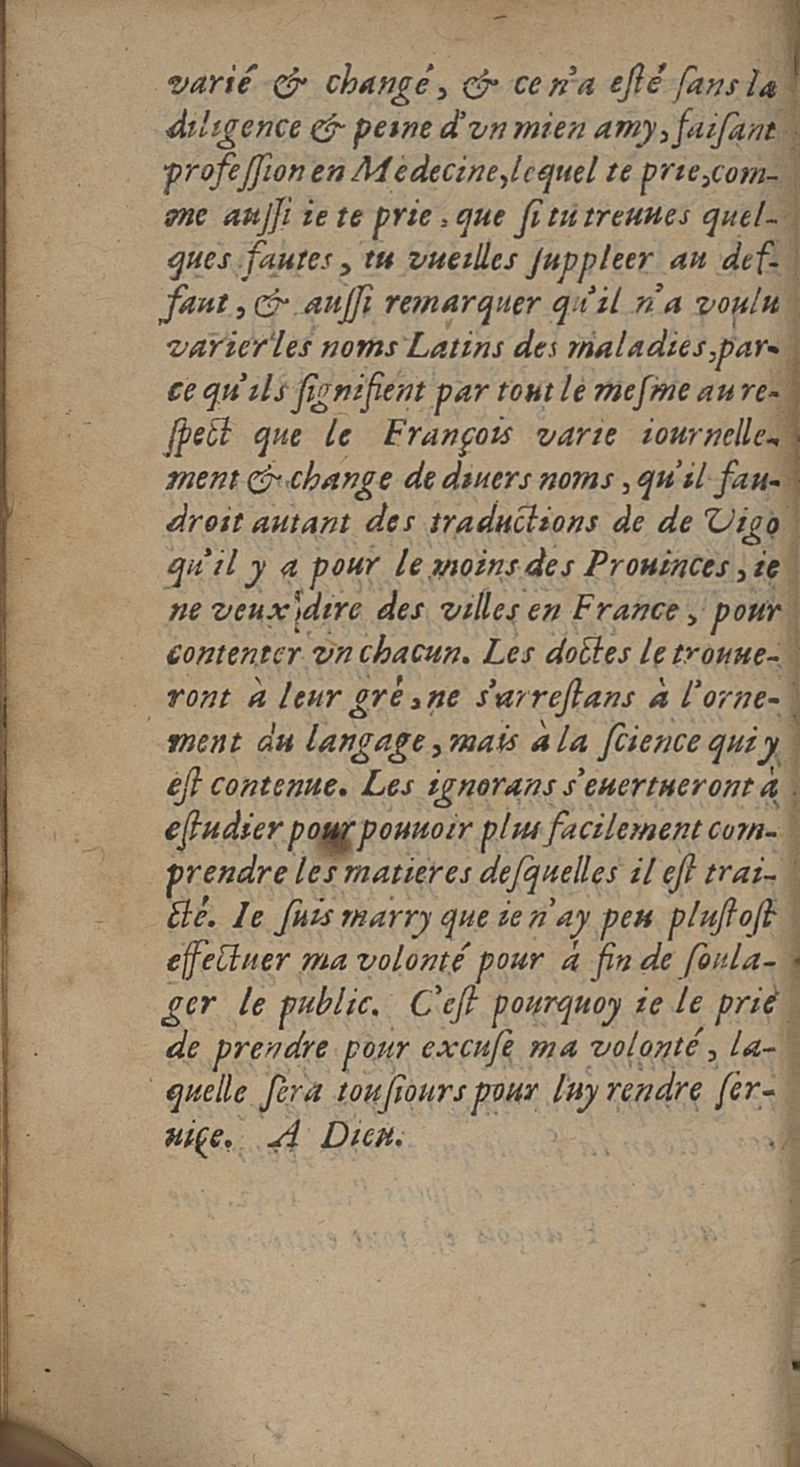 varié & changé, & ce n'a eſté ſans la
diligence & peine d'vn mien amy, faiſant
profeſſion en Medecine, lequel te prie, com-
me auſſi ie te prie, que ſi tu treuues quel-
ques fautes, tu vueilles ſuppleer au def-
faut, & auſſi remarquer qu'il n'a voulu
varier les noms Latins des maladies, par-
ce qu'ils ſignifient par tout le meſme au re-
ſpect que le François varie iournelle-
ment & change de diuers noms, qu'il fau-
droit autant des traductions de de Vigo
qu'il y a pour le moins des Prouinces, ie
ne veux dire des villes en France, pour
contenter vn chacun. Les doctes le trouue-
ront à leur gré, ne s'arreſtans à l'orne-
ment du langage, mais à la ſcience qui y
eſt contenue. Les ignorans s'euertueront à
eſtudier pour pouuoir plus facilement com-
prendre les matieres deſquelles il eſt trai-
cté. Ie ſuis marry que ie n'ay peu pluſtoſt
effectuer ma volonté pour à fin de ſoula-
ger le public. C'eſt pourquoy ie le prie
de prendre pour excuſe ma volonté, la-
quelle ſera touſiours pour luy rendre ſer-
uiçe. A Dieu.